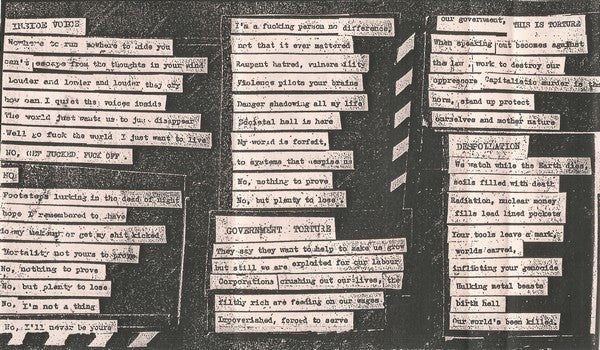 INSIDE VOICE
Nowhere to run nowhere to hide you
can't escape from the thoughts in your mind
Louder and louder and louder they cry
how can I quiet the voices inside
The world just wants us to just disappear
Well go fuck the world I just want to live
NO, GET FUCKED, FUCK OFF.
NO
Footsteps lurking in the dead of night
hope I remembered to have
my or get my shit kicked
Mortality not yours to prove
No, nothing to prove
No, but plenty to lose
No, I'm not a thing
No, I'll never be yours
I'm a fucking person no difference,
not that it ever mattered
Rampent hatred, vulnerability
Violence pilots your brains
Danger shadowing all my life
Societal hell is here
My world is forfeit,
to systems that despise us
No, nothing to prove
No, but plenty to lose.
GOVERNMENT TORTURE
They say they want to help to make us grow
but still we are exploited for our labour
Corporations crushing out our lives, the
filthy rich are feeding on our wages
Impoverished, forced to serve
our government, THIS IS TORTURE
When speaking out becomes against
the law, work to destroy our
oppressors Capitalistic murder is the
norm, stand up protect
ourselves and mother nature
DESPOLIATION
We watch while the Earth dies,
soils filled with death
Radiation, nuclear money
fills lead lined pockets
Your tools leave a mark,
worlds carved,
inflicting your genocide
Hulking metal beasts
birth hell
Our world's been killed,